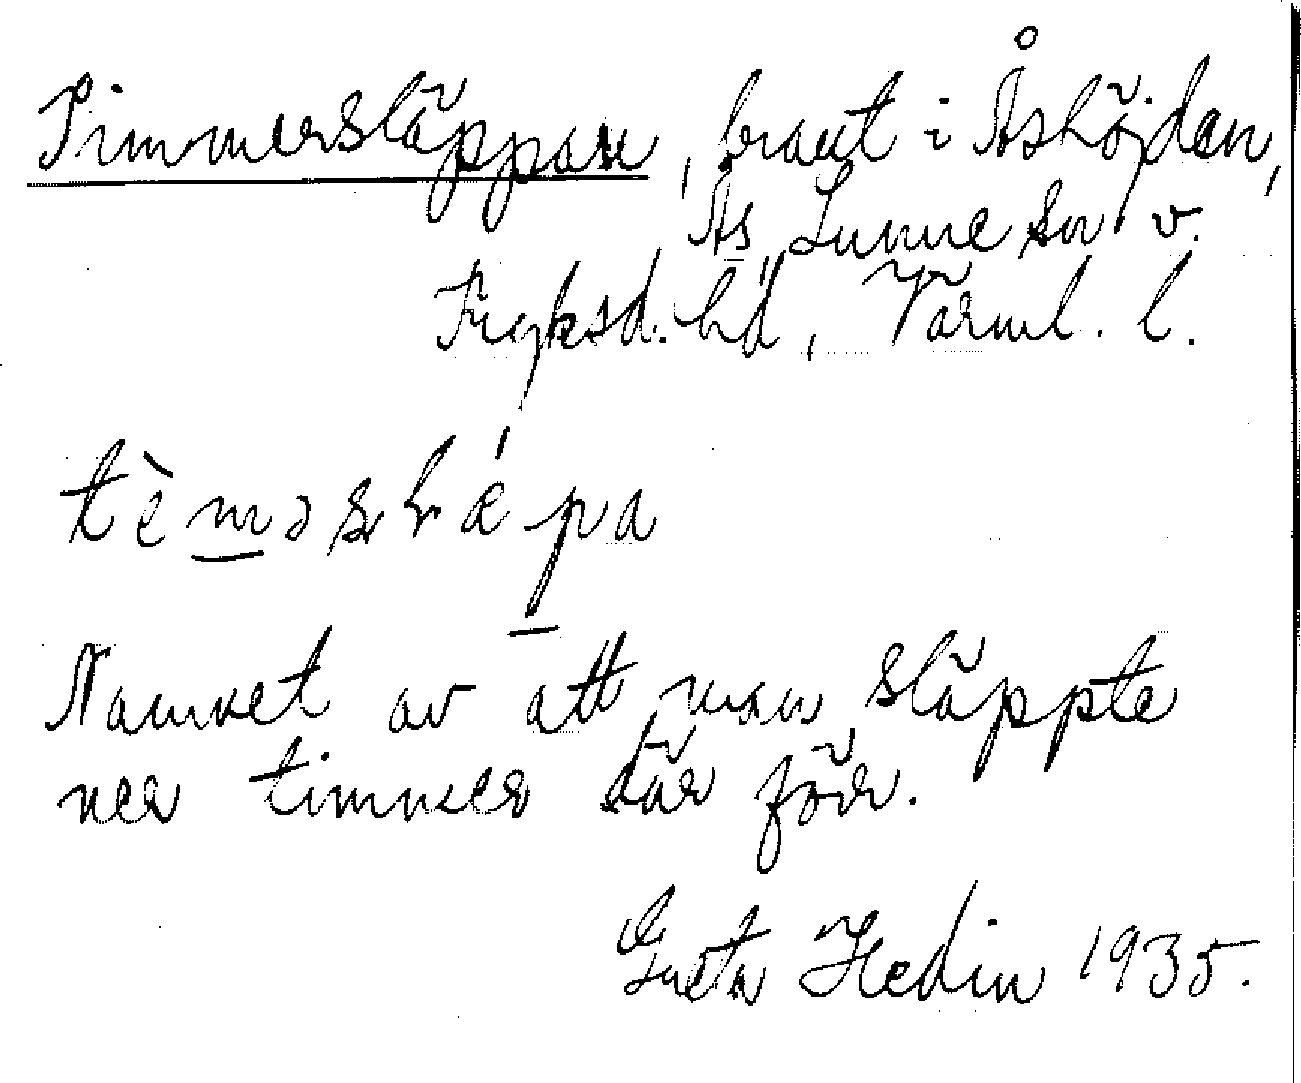 Timmersläppan, brant i Åshöjden,
Ås Sunne sn v.
Fryksd. hd, Värml. l.
tèmǝslǽpa
Namnet av att man släppte
ner timmer där förr.
Greta Hedin 1935.